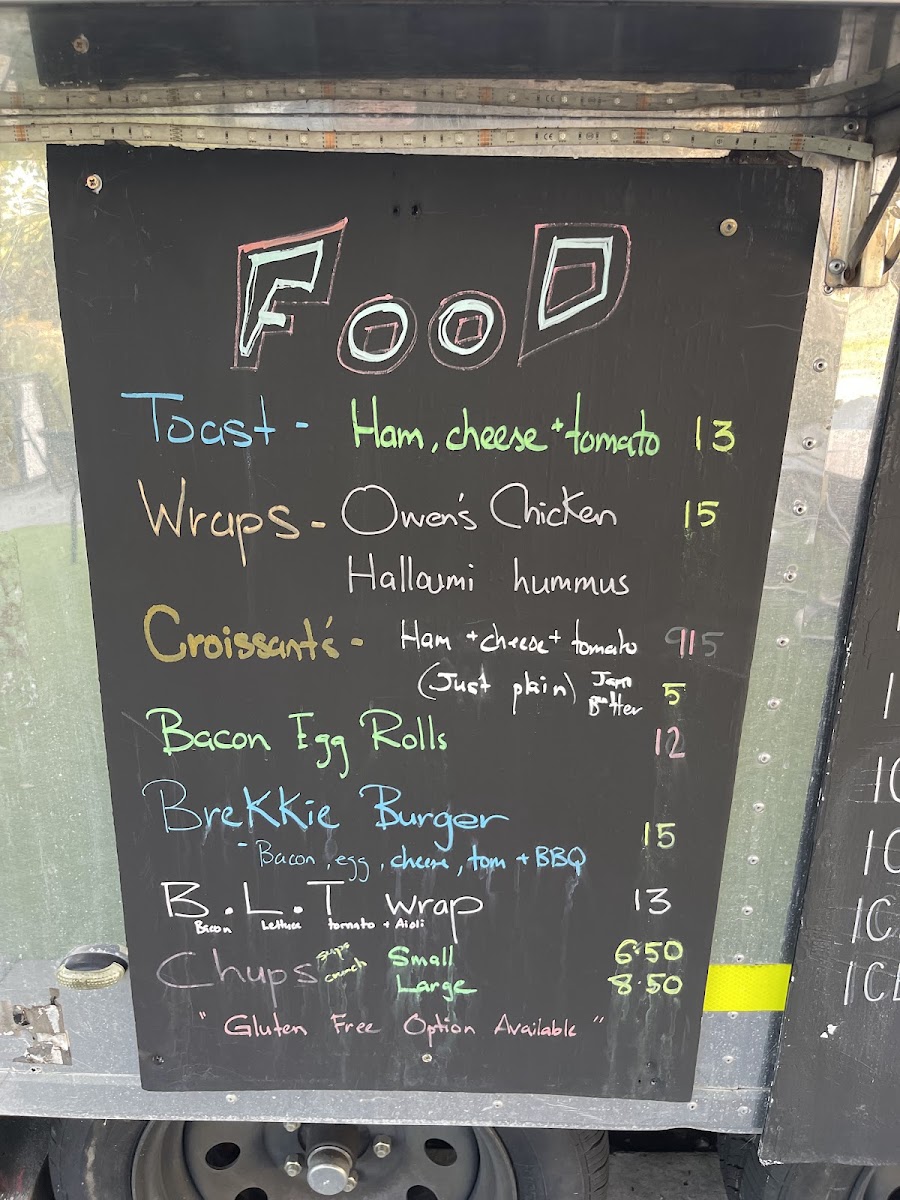 FOOD
Toast - Ham, cheese + tomato 13
Wraps - Owen's Chicken 15
Halloumi hummus
Croissant's - Ham + cheese + tomato
(Just plain) Jam Butter 5
Bacon Egg Rolls 12
Brekkie Burger 15
- Bacon, egg, cheese, tom + BBQ
B.L.T wrap 13
Bacon Lettuce tomato + Aioli
Chups Small 6.50
crunch Large 8.50
"Gluten Free Option Available"